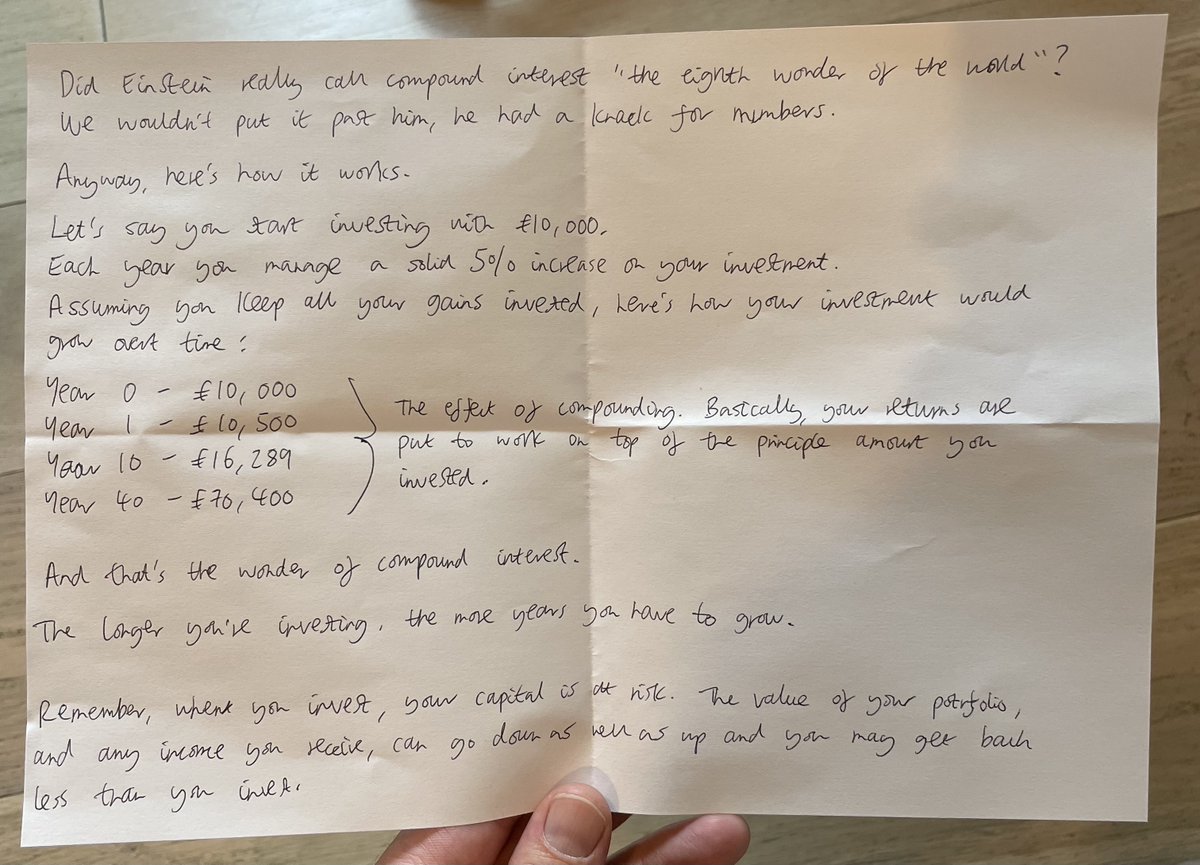 Did Einstein really call compound interest "the eighth wonder of the world"?
We wouldn't put it past him, he had a knack for numbers.
Anyway, here's how it works.
Let's say you start investing with £10,000.
Each year you manage a solid 5% increase on your investment.
Assuming you keep all your gains invested, here's how your investment would
grow overt time:
Year 0 - £10,000
Year 1 - £10,500
Year 10 - £16,289
Year 40 - £70,400
The effect of compounding. Basically, your returns are
put to work on top of the principle amount you
invested.
And that's the wonder of compound interest.
The longer you're investing, the more years you have to grow.
Remember, when you invest, your capital is at risk. The value of your potrfolio,
and any income you receive, can go down as well as up and you may get back
less than you invest.